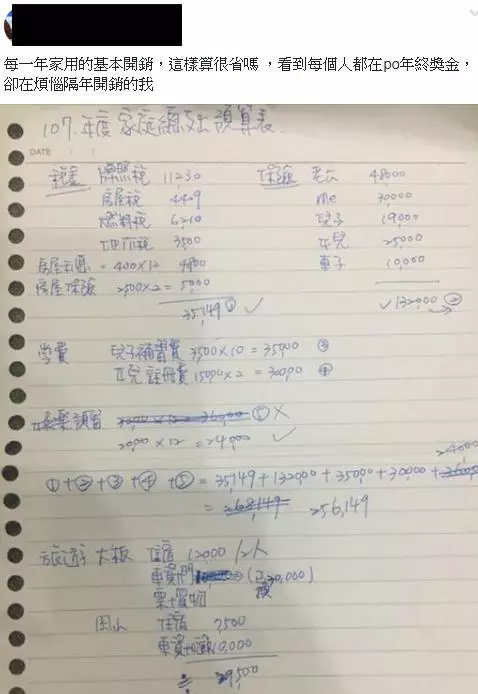 每一年家用的基本開銷，這樣算很省嗎 ，看到每個人都在po年終獎金，
卻在煩惱隔年開銷的我
107.年度 家庭總支出預算表
DATE
稅金 牌照稅 11230 保險 老公 48000
房屋稅 4409 me 30,000
燃料稅 6210 兒子 19000
地价稅 3500 女兒 25000
= 400×12 4800 車子 10,000
房屋保險 2,500×2 = 5,000
35,149 ① ✓ ✓ 132,000 ②
學費 兒子補習費 3,500×10 = 35,000 ③
女兒 註冊費 15,000×2 = 30,000 ④
娛樂預留 3,000×12 = 36,000 ⑤ X
2,000×12 = 24,000 ✓
24,000
①+②+③+④+⑤ = 35,149+132,000+35,000+30,000+36,000
= 268,149 256,149
旅遊 大板 住宿 12000/2人
車資 (已換30,000)
票+買物
住宿 7,500
車資 10,000
29,500